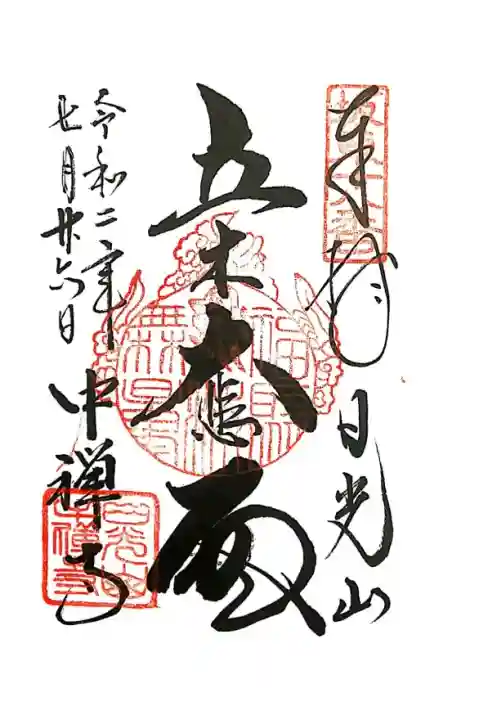 奉拝
日光山
立木大悲殿
令和二年
七月廿六日
中禅寺